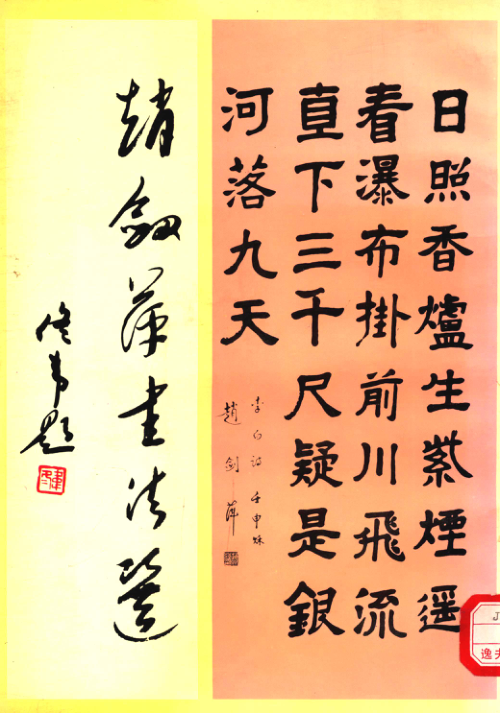 日照香爐生紫煙遥
看瀑布掛前川飛流
直下三千尺疑是銀
河落九天
李白詩 壬申秋
趙劍萍
趙劍萍書法選
佟韦題
J
逸夫